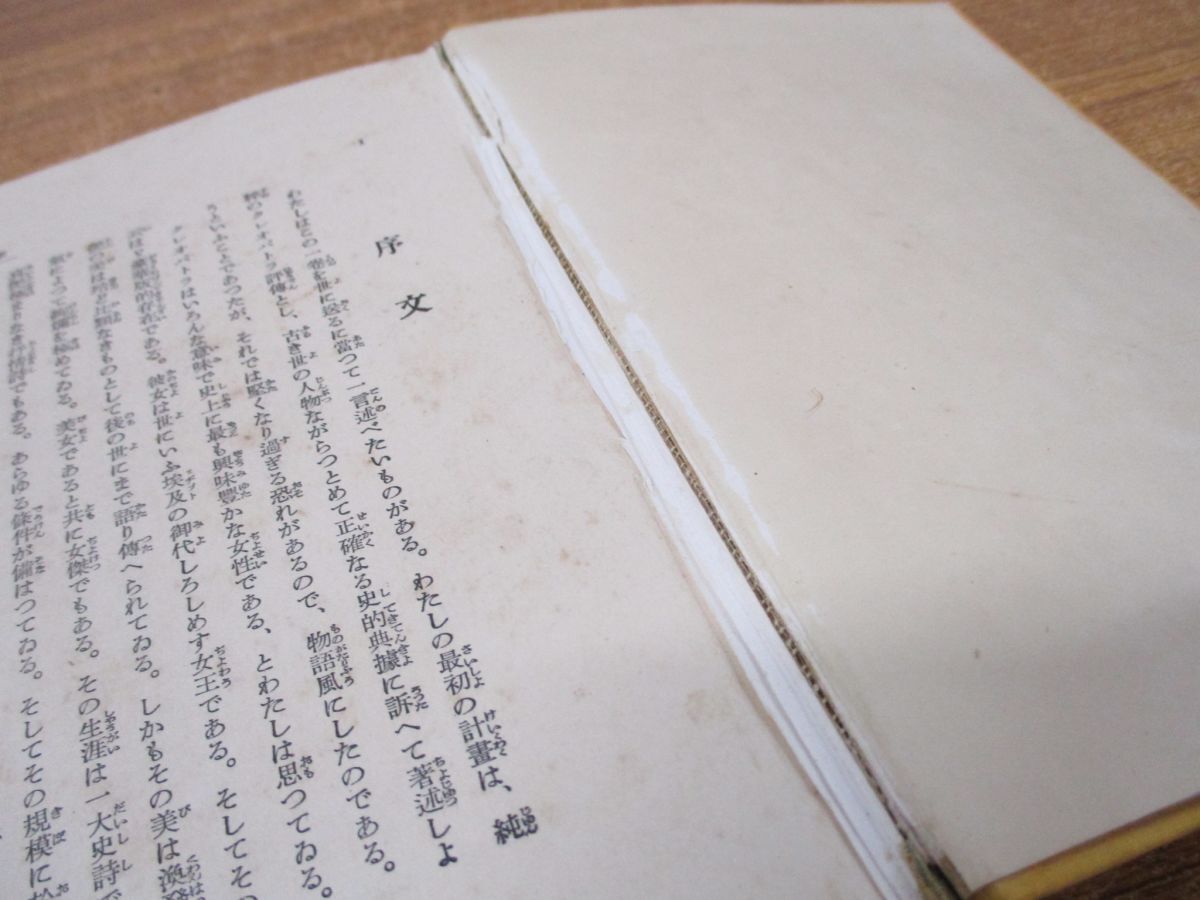 序文
わたしはこの一卷を世に送るに當つて一言述べたいものがある。わたしの最初の計畫は、純
粹のクレオパトラ評傳とし、古き世の人物ながらつとめて正確なる史的典據に訴へて著述しよ
うといふことであつたが、それでは堅くなり過ぎる恐れがあるので、物語風にしたのである。
クレオパトラはいろんな意味で史上に最も興味豊かな女性である、とわたしは思つてゐる。
である。彼女は世にいふ埃及の御代しろしめす女王である。そしてその
比類なきものとして後の世にまで語り傳へられてゐる。しかもその美は渙發
極めてゐる。美女であると共に女傑でもある。その生涯は一大史詩で
でもある。あらゆる條件が備はつてゐる。そしてその規模に